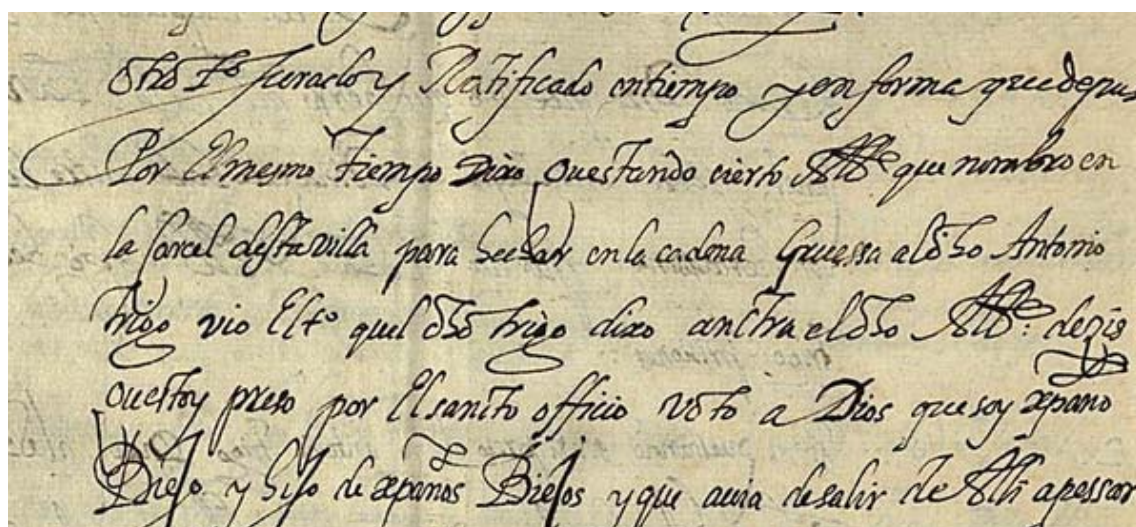 otro t.º Jurado y Ratificado en tiempo y en forma que depus
Por El mesmo tiempo Dixo questando cierto All.e que nombro en
la Carcel desta villa para hechar en la cadena gruessa al dho Antonio
trigo vio El t.º quel dho trigo dixo contra el dho All.e: dezis
questoy preso por El sancto officio voto a Dios que soy xpano
Biejo y hijo de xpanos Biejos y que auia de salir de Alli apessar